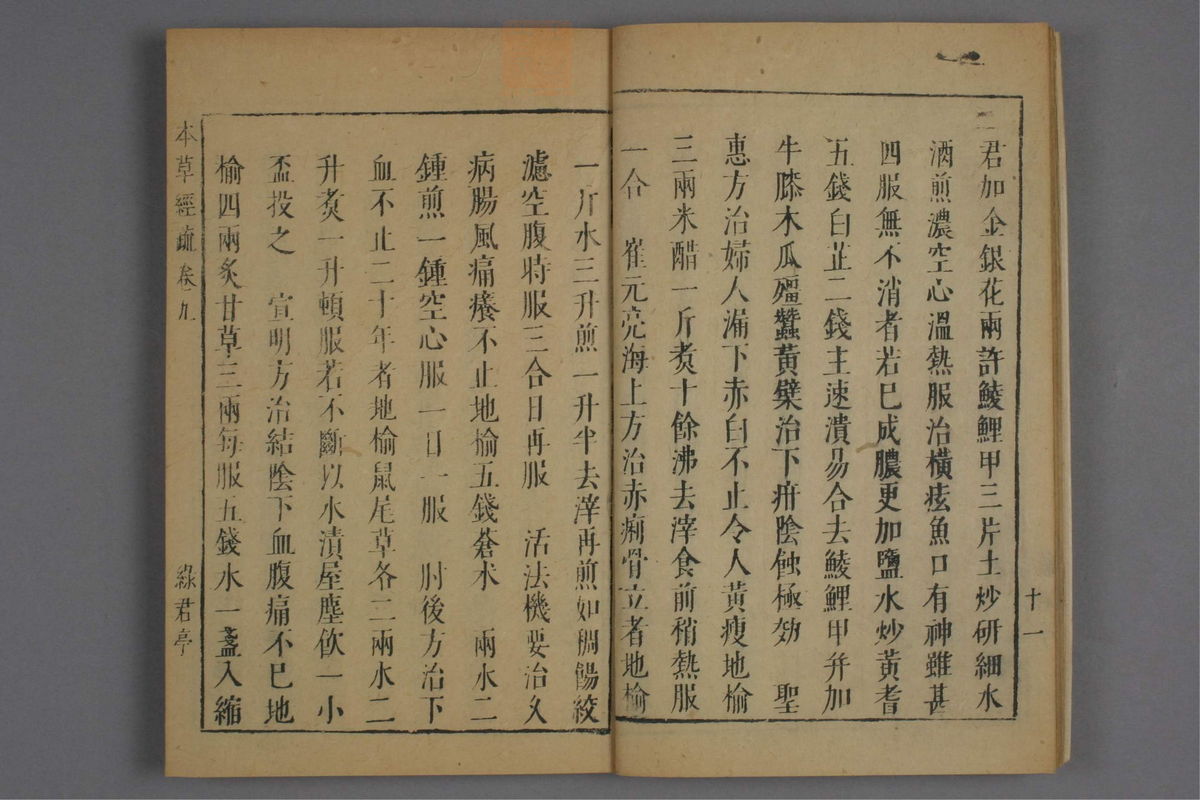 君加金銀花兩許鯪鯉甲三片土炒研細水
酒煎濃空心溫熱服治橫痃魚口有神雖甚
四服無不消者若已成膿更加鹽水炒黃耆
五錢白芷二錢主速潰易合去鯪鯉甲并加
牛膝木瓜殭蠶黃檗治下疳陰蝕極効　聖
惠方治婦人漏下赤白不止令人黃瘦地榆
三兩米醋一斤煑十餘沸去滓食前稍熱服
一合　崔元亮海上方治赤痢骨立者地榆
十一
一斤水三升煎一升半去滓再煎如稠餳絞
濾空腹時服三合日再服　活法機要治久
病腸風痛癢不止地榆五錢蒼朮　兩水二
鍾煎一鍾空心服一日一服　肘後方治下
血不止二十年者地榆鼠尾草各二兩水二
升煑一升頓服若不斷以水漬屋塵飲一小
盃投之　宣明方治結陰下血腹痛不已地
榆四兩炙甘草三兩每服五錢水一盞入縮
本草經疏　卷九　綠君亭